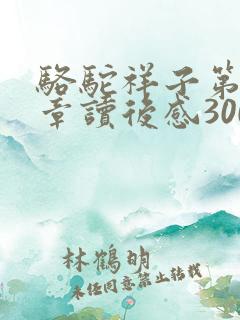 駱駝祥子第
章讀後感300
林鶴明
未經同意禁止轉載